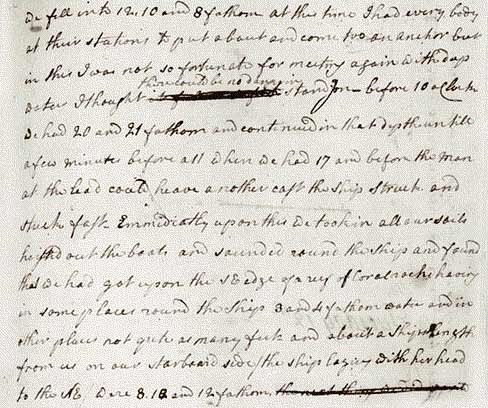 we fell into 12, 10 and 8 fathom at this time I had every body
at their stations to put about and come too an anchor but
in this I was not so fortunate for meeting again with deep
there could be no danger in
water I thought stand g on before 10 oClock
we had 20 and 21 fathom and continued in that depth untill
a few minutes before a 11 when we had 17 and before the man
at the lead could heave another cast the ship struck and
stuck fast. Emmidiatly upon this we took in all our sails
hoisted out the boats and sounded round the ship and found
that we had got upon the SE edge of a reef of Coral rocks having
in some places round the ship 3 and 4 fathom water and in
other places not quite as many feet and about a ships length
from us on our starboard side (the ship laying with her head
to the NE) were 8. 10 and 12 fathom